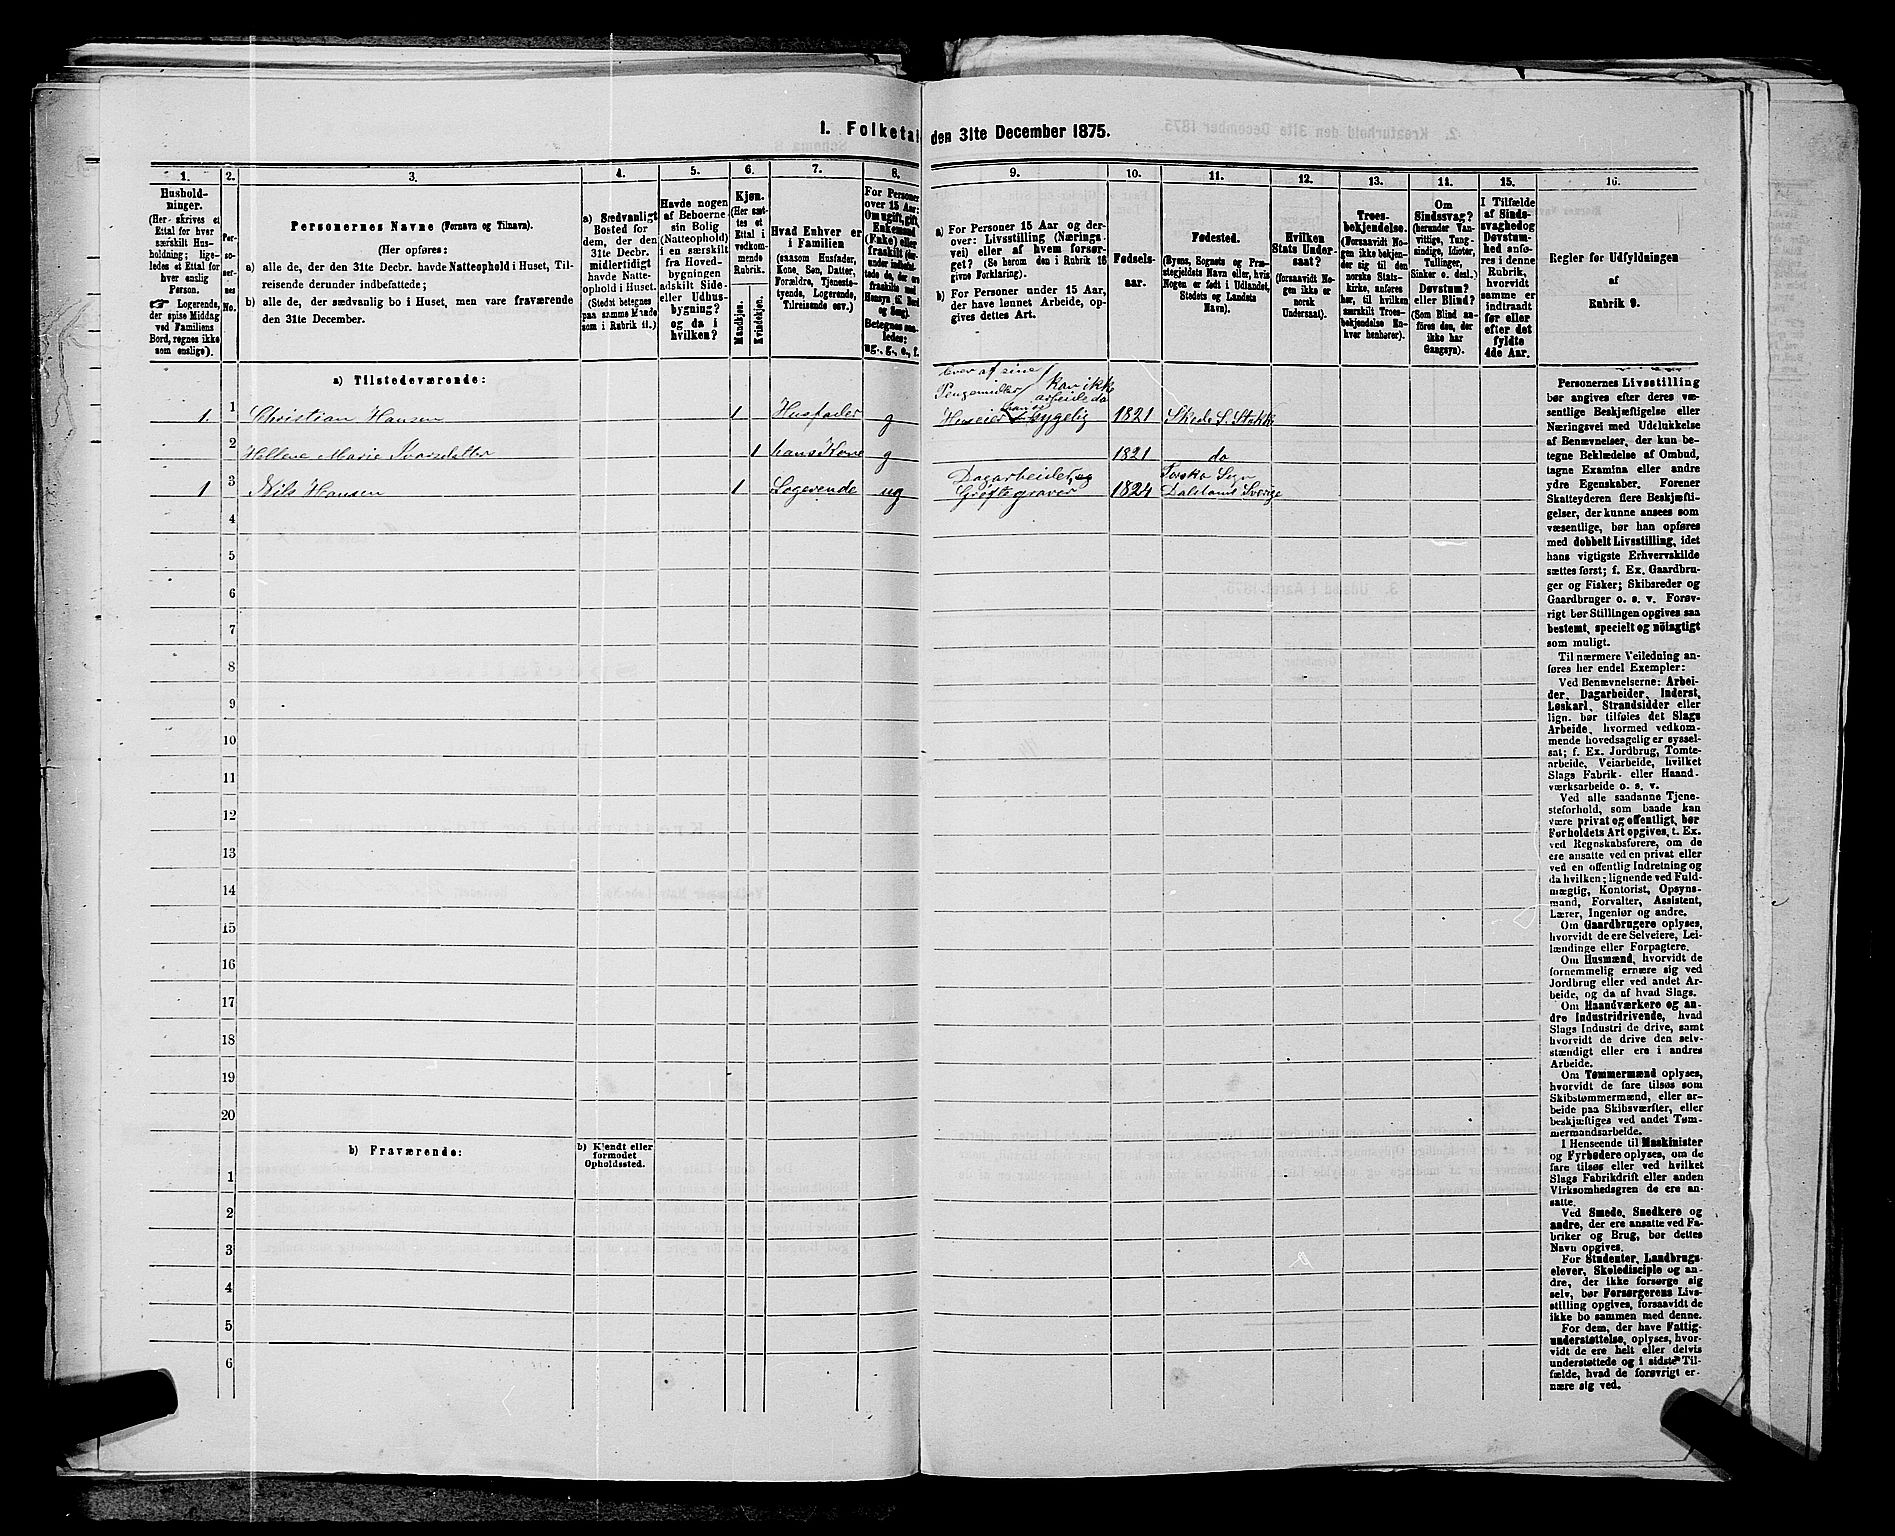 1. Folketal
den 31te December 1875.
1.
2.
3.
4.
5.
6.
7.
8.
9.
10.
11.
12.
13.
14.
15.
16.
Hushold-
ninger.
(Her skrives et
Ettal for hver
særskilt Hus-
holdning; lige-
ledes et Ettal for
hver enslig
Person.
☞ Logerende,
der spise Middag
ved Familiens
Bord, regnes ikke
som enslige).
Per-
so-
ner-
nes
No.
Personernes Navne (Fornavn og Tilnavn).
(Her opføres:
a) alle de, der den 31te Decbr. havde Natteophold i Huset, Til-
reisende derunder indbefattede;
b) alle de, der sædvanlig bo i Huset, men vare fraværende
den 31te December.
a) Sædvanligt
Bosted for
dem, der den
31te Decbr.
midlertidigt
havde Natte-
ophold i Huset.
(Stedet betegnes
paa samme Maade
som i Rubrik 11.)
Havde nogen
af Beboerne
sin Bolig
(Natteophold)
i en særskilt
fra Hoved-
bygningen
adskilt Side-
eller Udhus-
bygning?
og da i
hvilken?
Kjøn.
(Her sæt-
tes et
Ettal i
vedkom-
mende
Rubrik.
Mandkjøn.
Kvindekjøn.
Hvad Enhver er
i Familien
(saasom Husfader,
Kone, Søn, Datter,
Forældre, Tjeneste-
tyende, Logerende,
Tilreisende osv.)
For Personer
over 15 Aar:
Om ugift, gift,
Enkemand
(Enke) eller
fraskilt
Betegnes saa-
ledes:
ug., g., e., f.
a) For Personer 15 Aar og der-
over: Livsstilling (Nærings-
vei) eller af hvem forsør-
get? (Se herom den i Rubrik 16
givne Forklaring).
b) For Personer under 15 Aar,
der have lønnet Arbeide, op-
gives dettes Art.
Fødsels-
aar.
Fødested.
(Byens, Sognets og Præ-
stegjeldets Navn eller, hvis
Nogen er født i Udlandet,
Stedets og Landets
Navn).
Hvilken
Stats Under-
saat?
(forsaavidt No-
gen ikke er
norsk
Undersaat).
Troes-
bekjendelse.
(Forsaavidt No-
gen ikke bekjen-
der sig til den
norske Stats-
kirke, anføres
her, til hvilken
særskilt Troes-
bekjendelse En-
hver henhører).
Om
Sindssvag?
(herunder Van-
vittige, Tung-
sindige, Idioter,
Tullinger,
Sinker o. desl.)
Døvstum?
eller Blind?
(Som Blind an-
føres den, der
ikke har
Gangsyn).
I Tilfælde
af Sinds-
svaghed og
Døvstum-
hed anfø-
res i denne
Rubrik,
hvorvidt
samme er
indtraadt
før eller
efter det
fyldte
4de Aar.
Regler for Udfyldningen
af
Rubrik 9.
a) Tilstedeværende:
lever af sine
Pengemidler kan ikke
arbeide da
han er
1. 1 Christian Hansen 1 Husfader g Huseier sygelig 1821 Skede S. Stokke
2 Hellene Marie Ivarsdatter 1 hans Kone g 1821 do
1 3 Nils Hansen 1 Logerende ug Dagarbeider og
Grøftegraver 1824 Sogn
Dalsland Sverige
4
5
6
7
8
9
10
11
12
13
14
15
16
17
18
19
20
b) Fraværende:
b) Kjendt eller
formodet
Opholdssted.
1
2
3
4
5
6
Personernes Livsstilling
bør angives efter deres væ-
sentlige Beskjæftigelse eller
Næringsvei med Udelukkelse
af Benævnelser, der kun be-
tegne Beklædelse af Ombud,
tagne Examina eller andre
ydre Egenskaber. Forener
Skatteyderen flere Beskjæfti-
gelser, der kunne ansees som
væsentlige, bør han opføres
med dobbelt Livsstilling, idet
hans vigtigste Erhvervskilde
sættes først; f. Ex. Gaardbru-
ger og Fisker; Skibsreder og
Gaardbruger o. s. v. Forøv-
rigt bør Stillingen opgives saa
bestemt, specielt og nøiagtigt
som muligt.
Til nærmere Veiledning an-
føres her endel Exempler:
Ved Benævnelserne: Arbei-
der, Dagarbeider, Inderst,
Løskarl, Strandsidder eller
lign. bør tilføies det Slags
Arbeide, hvormed vedkom-
mende hovedsagelig er syssel-
sat; f. Ex. Jordbrug, Tomte-
arbeide, Veiarbeide, hvilket
Slags Fabrik- eller Haand-
værksarbeide o. s. v.
Ved alle saadanne Tjene-
steforhold, som baade kan
være privat og offentligt, bør
Forholdets Art opgives, t. Ex.
ved Regnskabsførere, om de
ere ansatte ved en privat eller
ved en offentlig Indretning og
da hvilken; lignende ved Fuld-
mægtig, Kontorist, Opsyns-
mand, Forvalter, Assistent,
Lærer, Ingeniør og andre.
Om Gaardbrugere oplyses,
hvorvidt de ere Selveiere, Lei-
lændinge eller Forpagtere.
Om Husmænd, hvorvidt de
fornemmelig ernære sig ved
Jordbrug eller ved andet Ar-
beide, og da af hvad Slags.
Om Haandværkere og an-
dre Industridrivende, hvad
Slags Industri de drive, samt
hvorvidt de drive den selv-
stændigt eller ere i andres
Arbeide.
Om Tømmermænd oplyses,
hvorvidt de fare tilsøs som
Skibstømmermænd, eller ar-
beide paa Skibsværfter, eller
beskjæftiges ved andet Tøm-
mermandsarbeide.
I Henseende til Maskinister
og Fyrbødere oplyses, om de
fare tilsøs eller ved hvilket
Slags Fabrikdrift eller anden
Virksomhedsgren de ere an-
satte.
Ved Smede, Snedkere og
andre, der ere ansatte ved Fa-
briker og Brug, bør dettes
Navn opgives.
For Studenter, Landbrugs-
elever, Skoledisciple og an-
dre, der ikke forsørge sig
selv, bør Forsørgerens Livs-
stilling opgives, forsaavidt de
ikke bo sammen med denne.
For dem, der have Fattig-
understøttelse, oplyses, hvor-
vidt de ere helt eller delvis
understøttede og i sidste Til-
fælde, hvad de forøvrigt er-
nære sig ved.